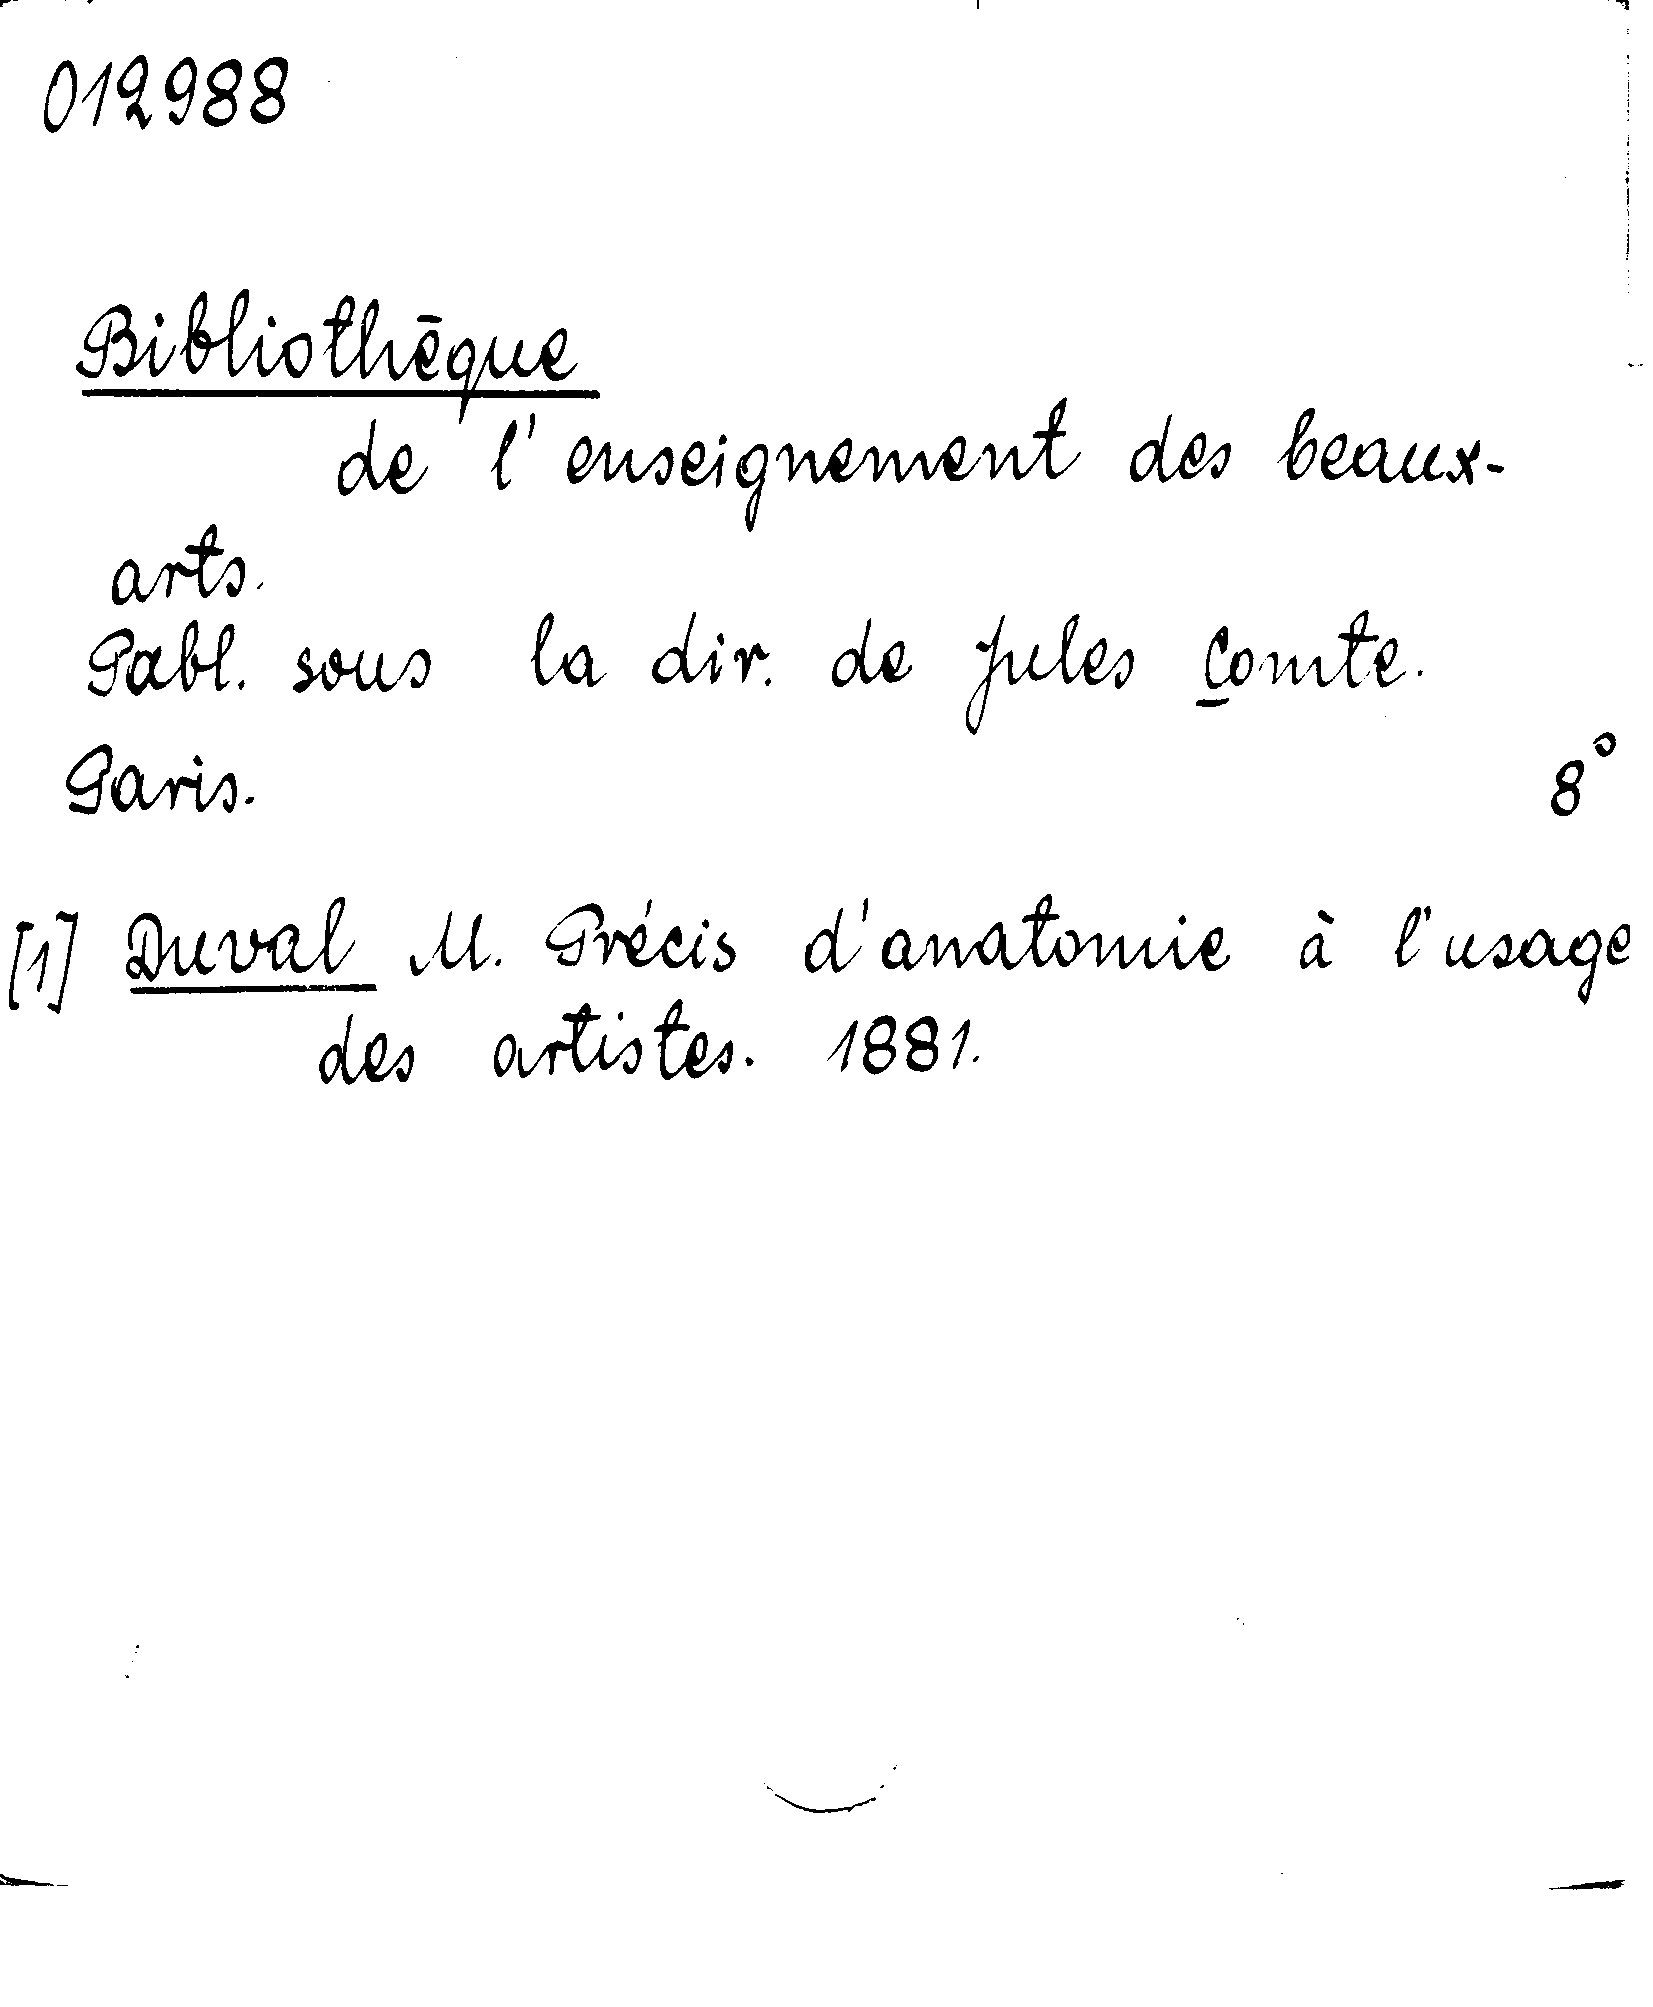 012988
Bibliothēque
de l'enseignement des beaux-
arts.
Pabl. sous la dir. de Jules Comte.
Paris. 8°
[1] Duval M. Précis d'anatomie à l'usage
des artistes. 1881.